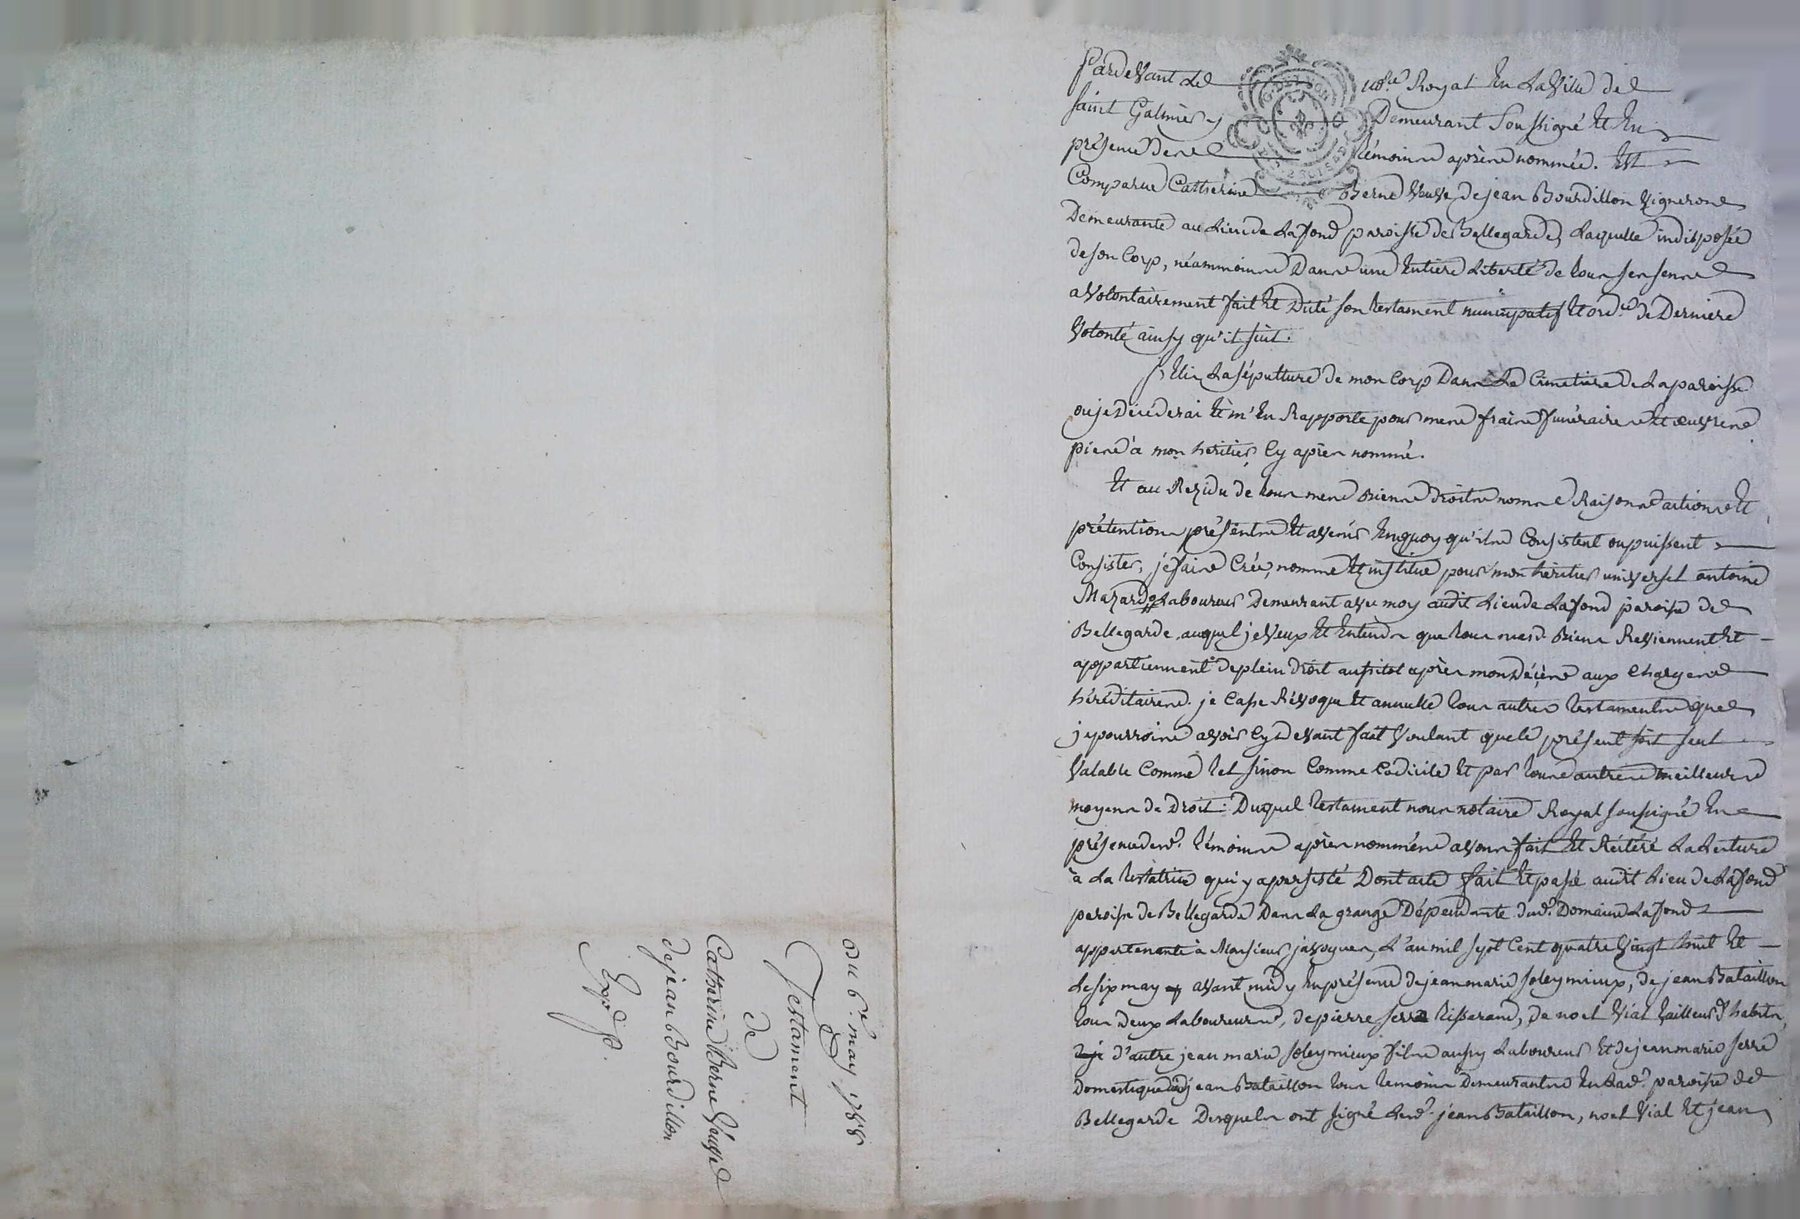 Pardevant Le nore. Royal En La Ville de
Saint Galmier y Demeurant Soussigné Et En
présence des témoins après nommés. Est
Comparue Catherine Berne Veuve de jean Bourdillon Vigneron
Demeurante au Lieu de Lafond paroisse de Bellegarde, Laquelle indisposée
de son Corp, néammoins Dans une Entière Liberté de tous ses sens
a Volontairement fait Et Dicté son testament nuncupatif Et ordce. de Derniere
Volonté ainsy qu'il suit.
J'Elis La sépulture de mon Corp Dans Le Cimetière de La paroisse
ou je Décéderai Et m'En Rapporte pour mes frais funéraires Et œuvres
pies à mon héritier Cy après nommé.
Et au Rezidu de tous mes Biens Droits noms Raisons actions Et
prétentions présents Et avenir En quoy qu'ils Consistent ou puissent
Consister, je fais Crée, nomme Et institue pour mon héritier universel antoine
Mazard Laboureur Demeurant avec moy audit Lieu de Lafond paroisse de
Bellegarde auquel je Veux Et Entends que tous mesd. Biens Reviennent Et
appartiennent de plein Droit aussitot après mon Décès aux Charges
héréditaires. je Casse Révoque Et annulle tous autres testaments que
je pourrois avoir Cy devant fait Voulant que Le présent soit seul
Valable Comme tel sinon Comme Codicile Et par tous autres meilleurs
moyens de Droit: Duquel testament nous notaire Royal soussigné En
présence desd. témoins après nommés avons fait Et Réitéré La Lecture
à La testatrice qui y a persisté Dont acte fait Et passé audit Lieu de Lafond
paroisse de Bellegarde Dans La grange Dépendante dud. Domaine Lafond
appartenante à Monsieur javogues, L'an mil sept Cent quatre Vingt huit Et
Le six may avant midy En présence de jean marie soleymieux, de jean Bataillon
tous Deux Laboureurs, de pierre serre tisserand, de noel Vial tailleur d'habits,
d'autre jean marie soleymieux fils aussy Laboureur Et de jean marie serre
Domestique dud. jean Bataillon tous temoins Demeurants En Lad. paroisse de
Bellegarde Desquels ont signé Lesd. jean Bataillon, noel Vial Et jean
Du 6e. may 1788
Testament
de
Catherine Berne Veuve
de jean Bourdillon